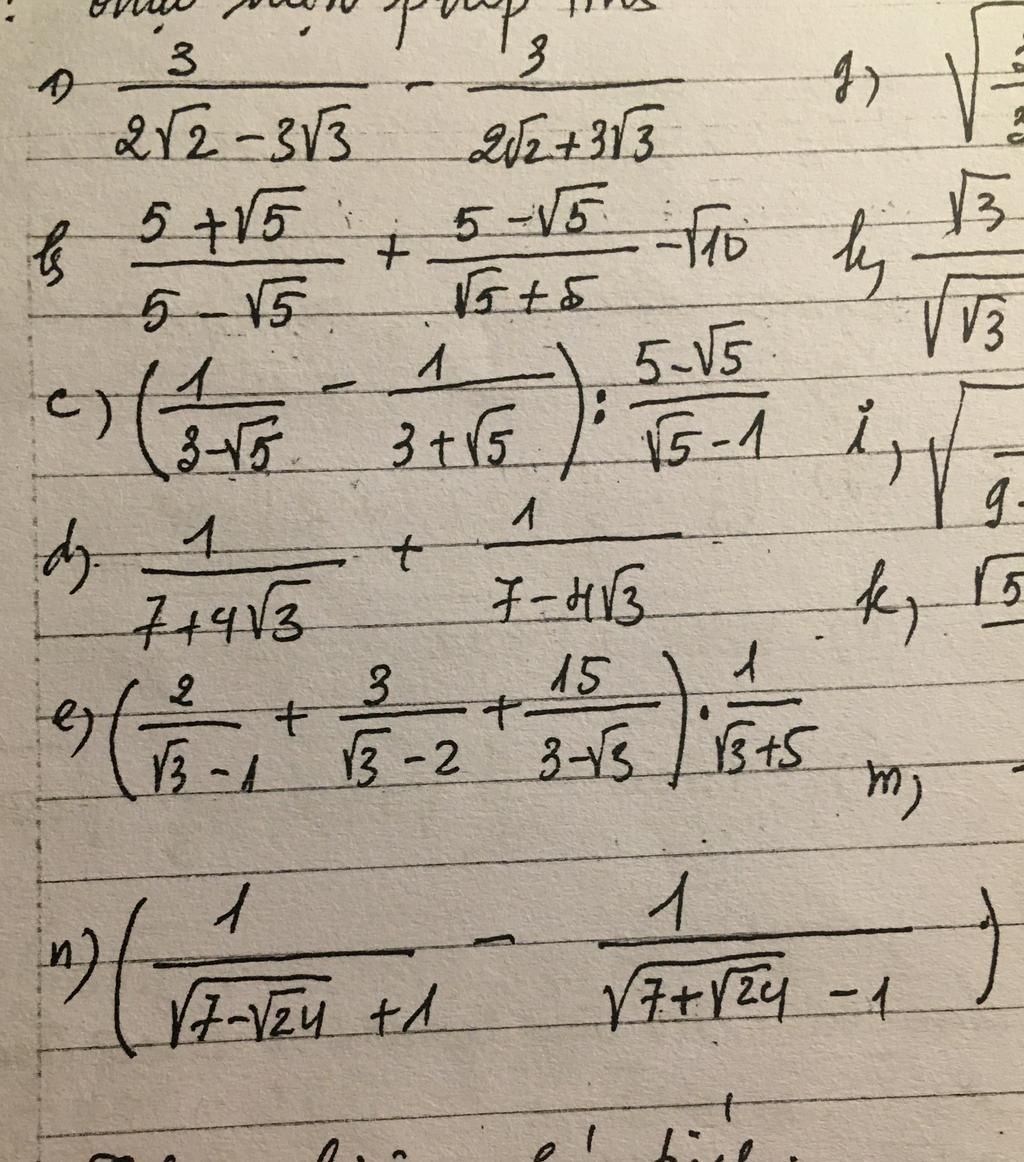 thực hiện phép tính
a) \frac{3}{2\sqrt{2}-3\sqrt{3}} - \frac{3}{2\sqrt{2}+3\sqrt{3}} g,
b, \frac{5+\sqrt{5}}{5-\sqrt{5}} + \frac{5-\sqrt{5}}{\sqrt{5}+5} - \sqrt{10} h, \frac{\sqrt{3}}{\sqrt{\sqrt{3}}}
c) (\frac{1}{3-\sqrt{5}} - \frac{1}{3+\sqrt{5}}) : \frac{5-\sqrt{5}}{\sqrt{5}-1} i,
d). \frac{1}{7+4\sqrt{3}} + \frac{1}{7-4\sqrt{3}} k, \sqrt{5}
e) (\frac{2}{\sqrt{3}-1} + \frac{3}{\sqrt{3}-2} + \frac{15}{3-\sqrt{3}}) . \frac{1}{\sqrt{3}+5} m,
n) (\frac{1}{\sqrt{7-\sqrt{24}}+1} - \frac{1}{\sqrt{7+\sqrt{24}}-1})